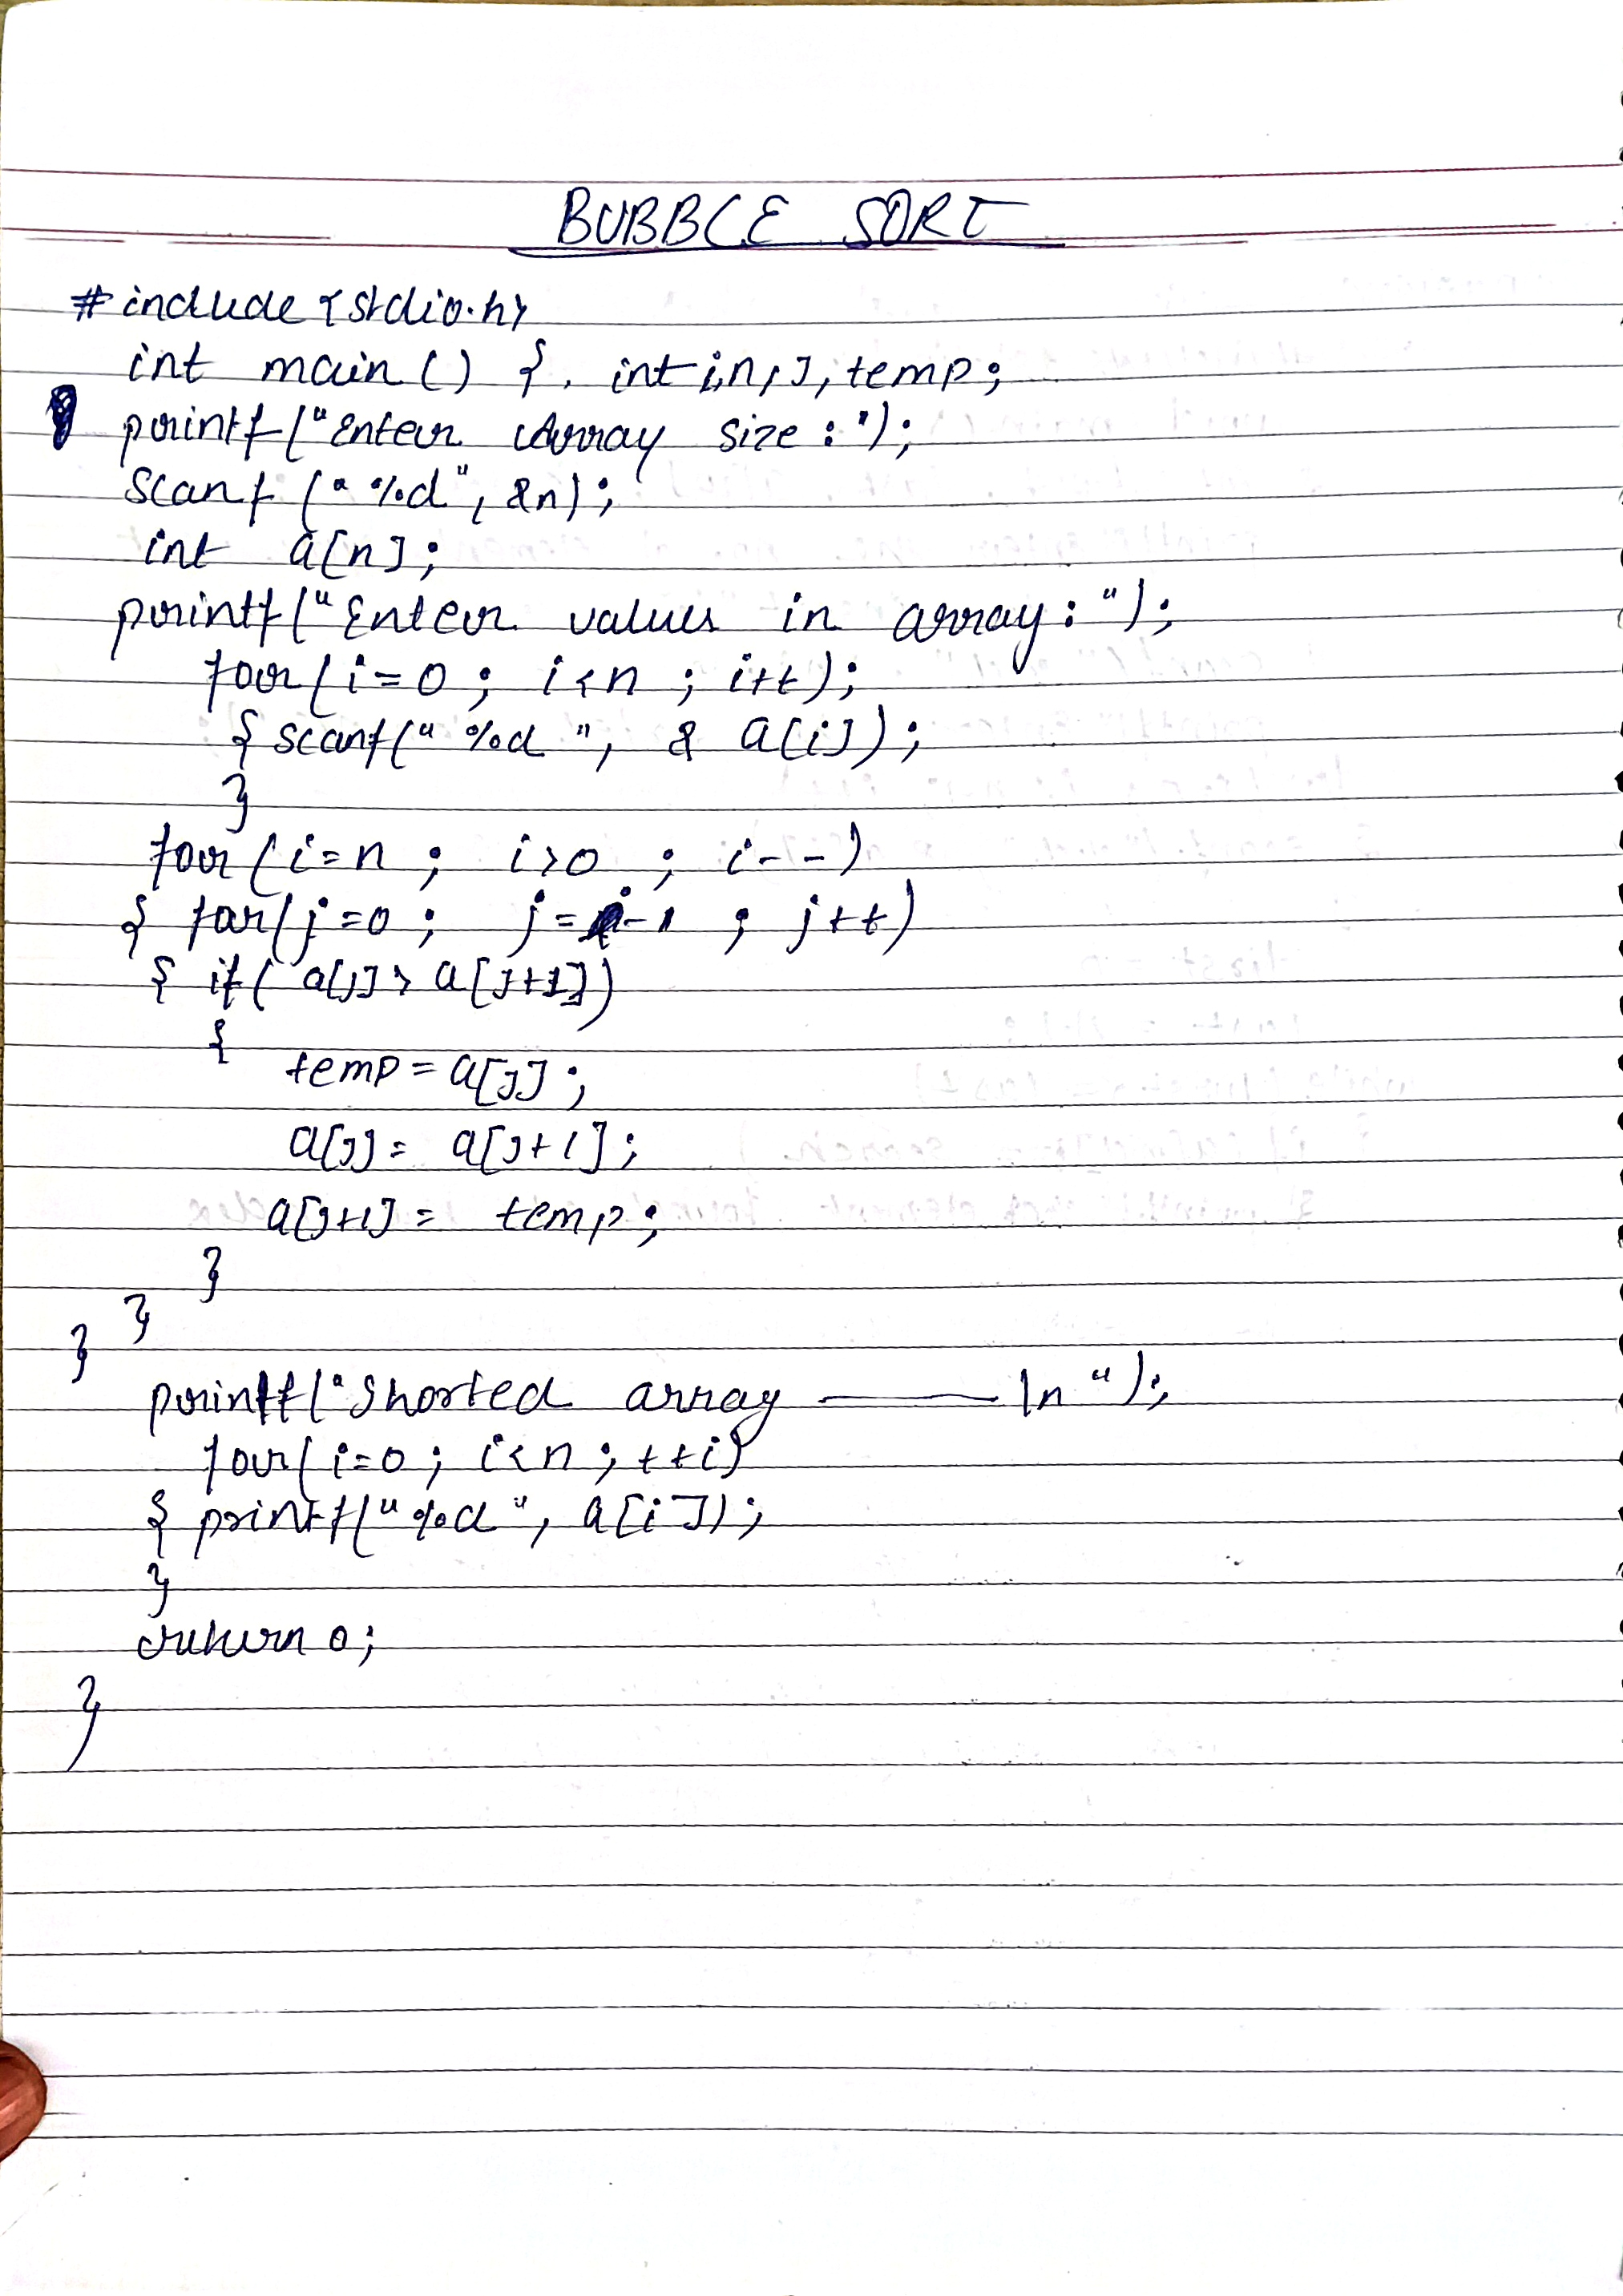 BUBBLE SORT
#include <stdio.h>
int main() { int i,n,j,temp;
printf("Enter Array size:");
scanf("%d", &n);
int a[n];
printf("Enter values in array:");
for(i=0; i<n; i++);
{ scanf("%d", & a[i]);
}
for(i=n; i>0; i--)
{ for(j=0; j=i-1; j++)
{ if( a[j] > a[j+1])
{
temp = a[j];
a[j] = a[j+1];
a[j+1] = temp;
}
}
}
printf("Shorted array —— \n");
for(i=0; i<n; ++i)
{ printf("%d", a[i]);
}
return 0;
}